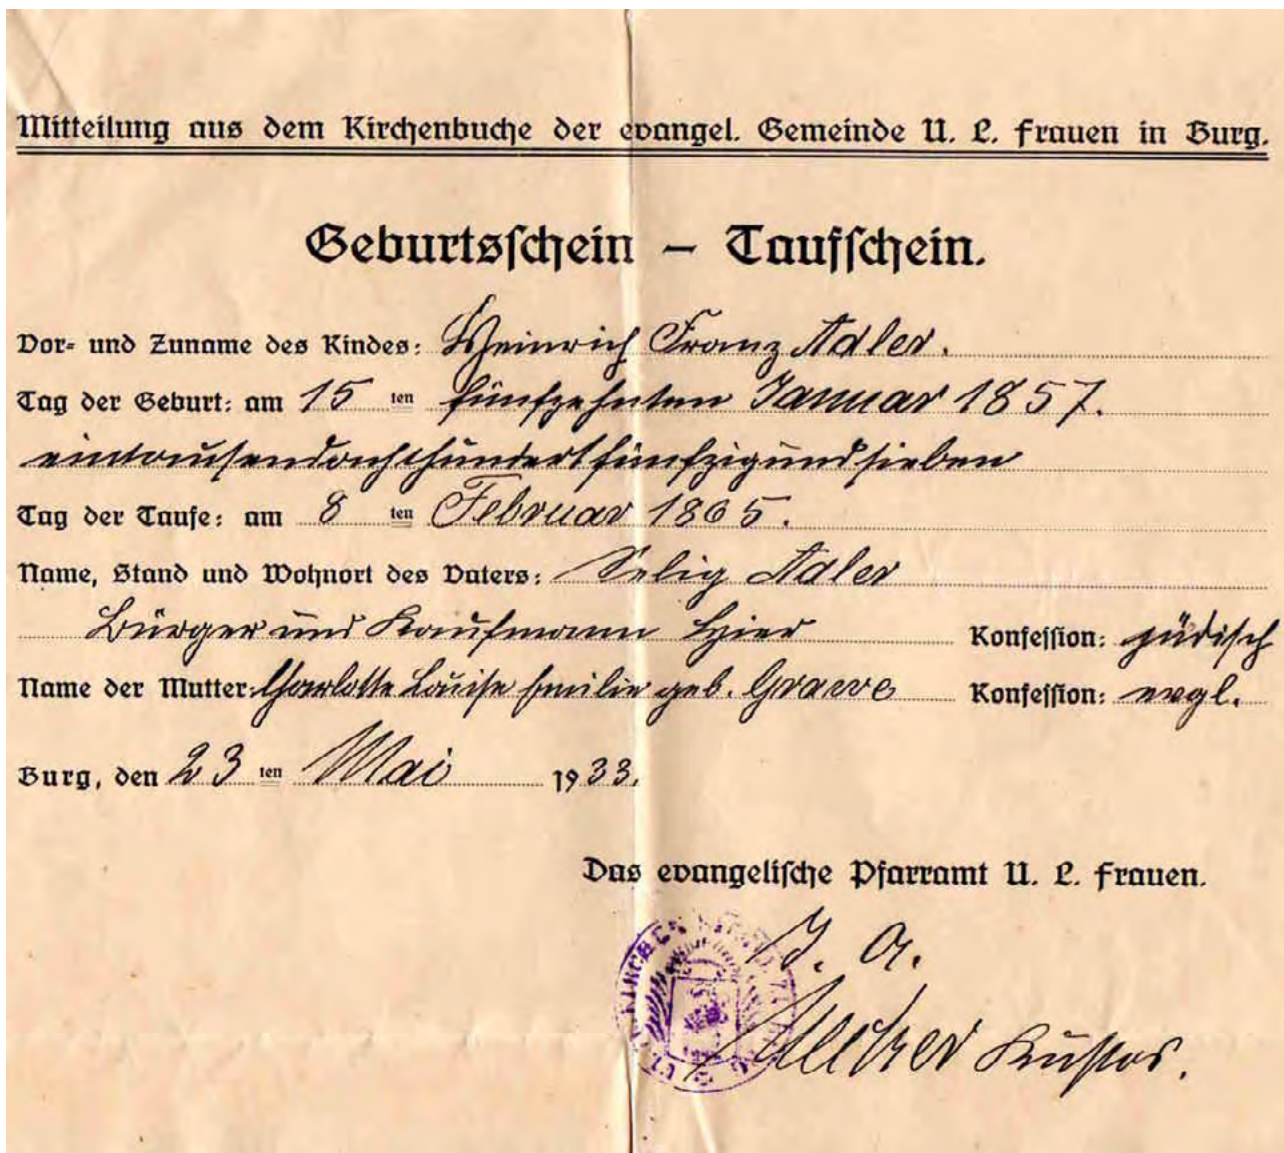 Mitteilung aus dem Kirchenbuche der evangel. Gemeinde U. L. Frauen in Burg.
Geburtsschein – Taufschein.
Vor- und Zuname des Kindes: Heinrich Franz Adler.
Tag der Geburt: am 15 ten fünfzehnten Januar 1857.
eintausendachthundertfünfzigundsieben
Tag der Taufe: am 8 ten Februar 1865.
Name, Stand und Wohnort des Vaters: Selig Adler
Bürger und Kaufmann hier Konfession: jüdisch
Name der Mutter: Charlotte Louise Emilie geb. Graeve Konfession: evgl.
Burg, den 23 ten Mai 1933.
Das evangelische Pfarramt U. L. Frauen.
I. A.
Küster.